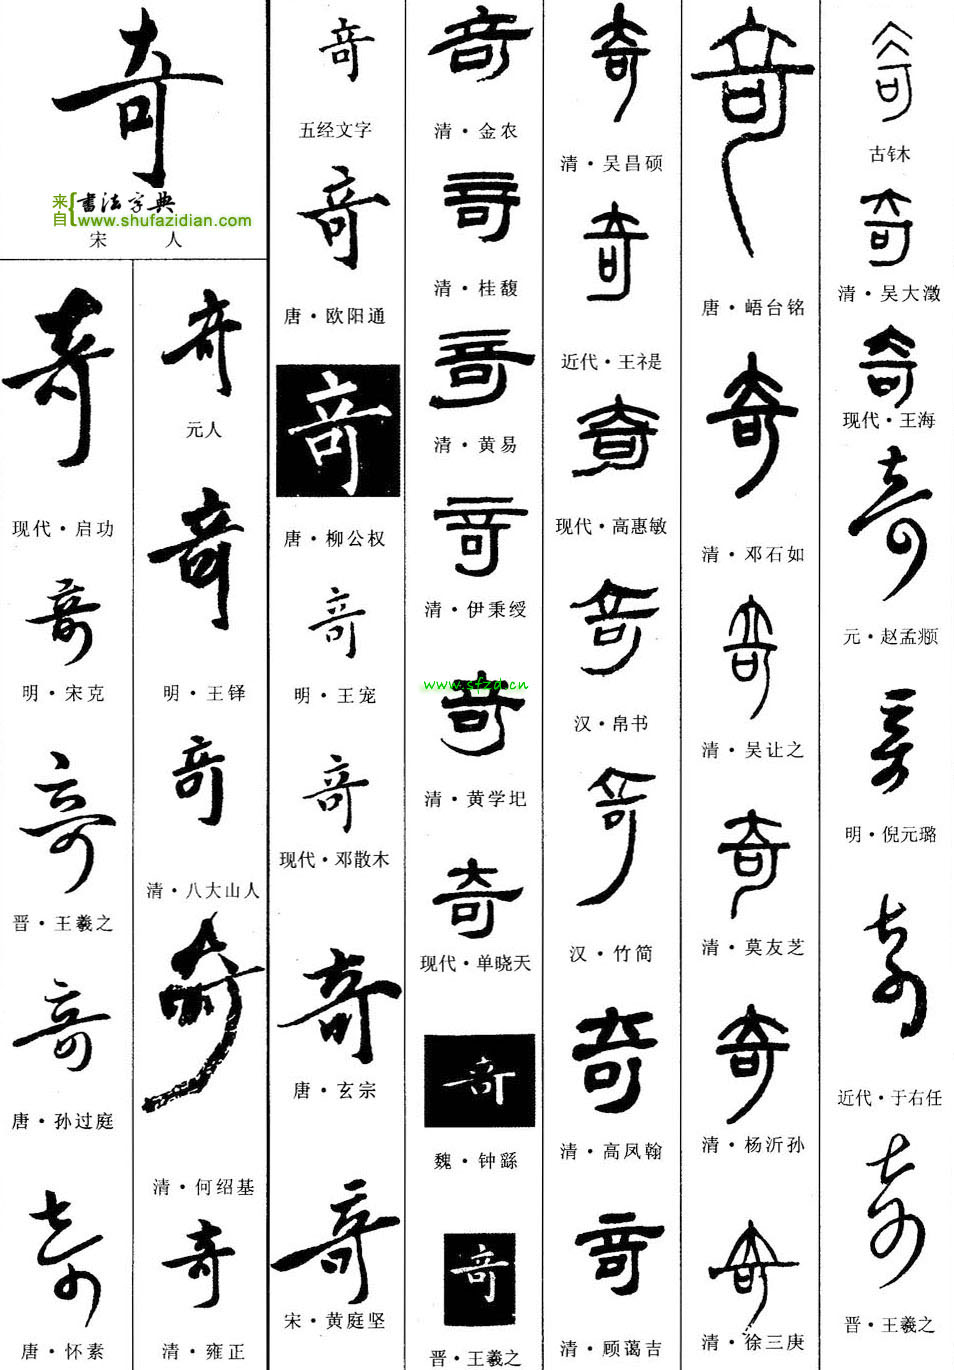 奇
来自
书法字典
www.shufazidian.com
宋 人
奇
现代·启功
奇
明·宋克
奇
晋·王羲之
奇
唐·孙过庭
奇
唐·怀素
奇
元人
奇
明·王铎
奇
清·八大山人
奇
清·何绍基
奇
清·雍正
奇
五经文字
奇
唐·欧阳通
奇
唐·柳公权
奇
明·王宠
奇
现代·邓散木
奇
唐·玄宗
奇
宋·黄庭坚
奇
清·金农
奇
清·桂馥
奇
清·黄易
奇
清·伊秉绶
www.sfzd.cn
奇
清·黄学圯
奇
现代·单晓天
奇
魏·钟繇
奇
晋·王羲之
奇
清·吴昌硕
奇
近代·王禔
奇
现代·高惠敏
奇
汉·帛书
奇
汉·竹简
奇
清·高凤翰
奇
清·顾蔼吉
奇
唐·峿台铭
奇
清·邓石如
奇
清·吴让之
奇
清·莫友芝
奇
清·杨沂孙
奇
清·徐三庚
奇
古钵木
奇
清·吴大澂
奇
现代·王海
奇
元·赵孟頫
奇
明·倪元璐
奇
近代·于右任
奇
晋·王羲之